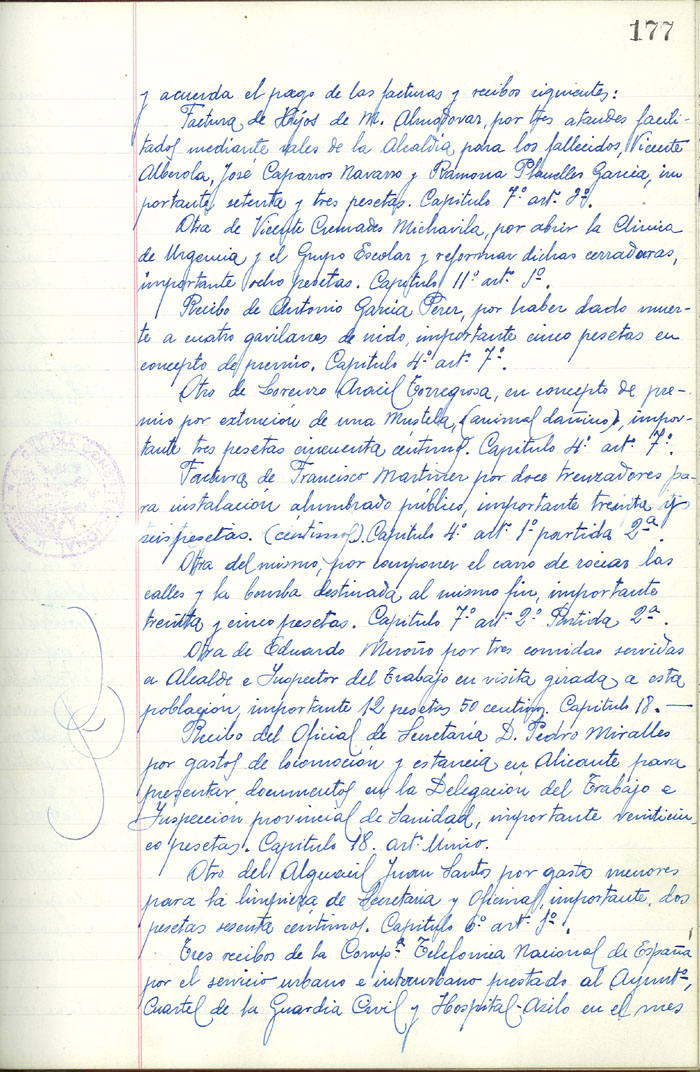 177
y acuerda el pago de las facturas y recibos siguientes:
Factura de Hijos de M. Almodovar, por tres ataudes facili-
tados mediante vales de la Alcaldia para los fallecidos, Vicente
Alberola, José Caparros Navarro y Ramona Planelles Garcia, im
portante, setenta y tres pesetas. Capitulo 7º art. 2º.
Otra de Vicente Cremades Michavila, por abrir la Clinica
de Urgencia y el Grupo Escolar y reformar dichas cerraduras,
importante ocho pesetas. Capitulo 11º artº 1º.
Recibo de Antonio Garcia Perez, por haber dado muer-
te a cuatro gavilanes de nido, importante cinco pesetas en
concepto de premio. Capitulo 4º artº 7º.
Otro de Lorenzo Aracil Torregrosa, en concepto de pre-
mio por extinción de una Mustela, (animal dañino), impor-
tante tres pesetas cincuenta céntimos. Capitulo 4º artº 7º.
Factura de Francisco Martinez por doce trenzadores pa-
ra instalación alumbrado público, importante treinta y
seis pesetas. (céntimos). Capitulo 4º artº 1º partida 2ª.
Otra del mismo, por componer el carro de rociar las
calles y la bomba destinada al mismo fin, importante
treinta y cinco pesetas. Capitulo 7º artº 2º Partida 2ª.
Otra de Eduardo Meroño por tres comidas servidas
a Alcalde e Inspector del Trabajo en visita girada a esta
población, importante 12 pesetas 50 centims. Capitulo 18. —
Recibo del Oficial de Secretaría D. Pedro Miralles
por gastos de locomoción y estancia en Alicante para
presentar documentos en la Delegación del Trabajo e
Inspección provincial de Sanidad, importante veinticin-
co pesetas. Capitulo 18. artº Unico.
Otro del Alguacil Juan Santos por gastos menores
para la limpieza de Secretaria y Oficinas, importante, dos
pesetas sesenta céntimos. Capitulo 6º artº 1º.
Tres recibos de la Compª Telefonica Nacional de España
por el servicio urbano e interurbano prestado al Ayuntº,
Cuartel de la Guardia Civil y Hospital-Asilo en el mes